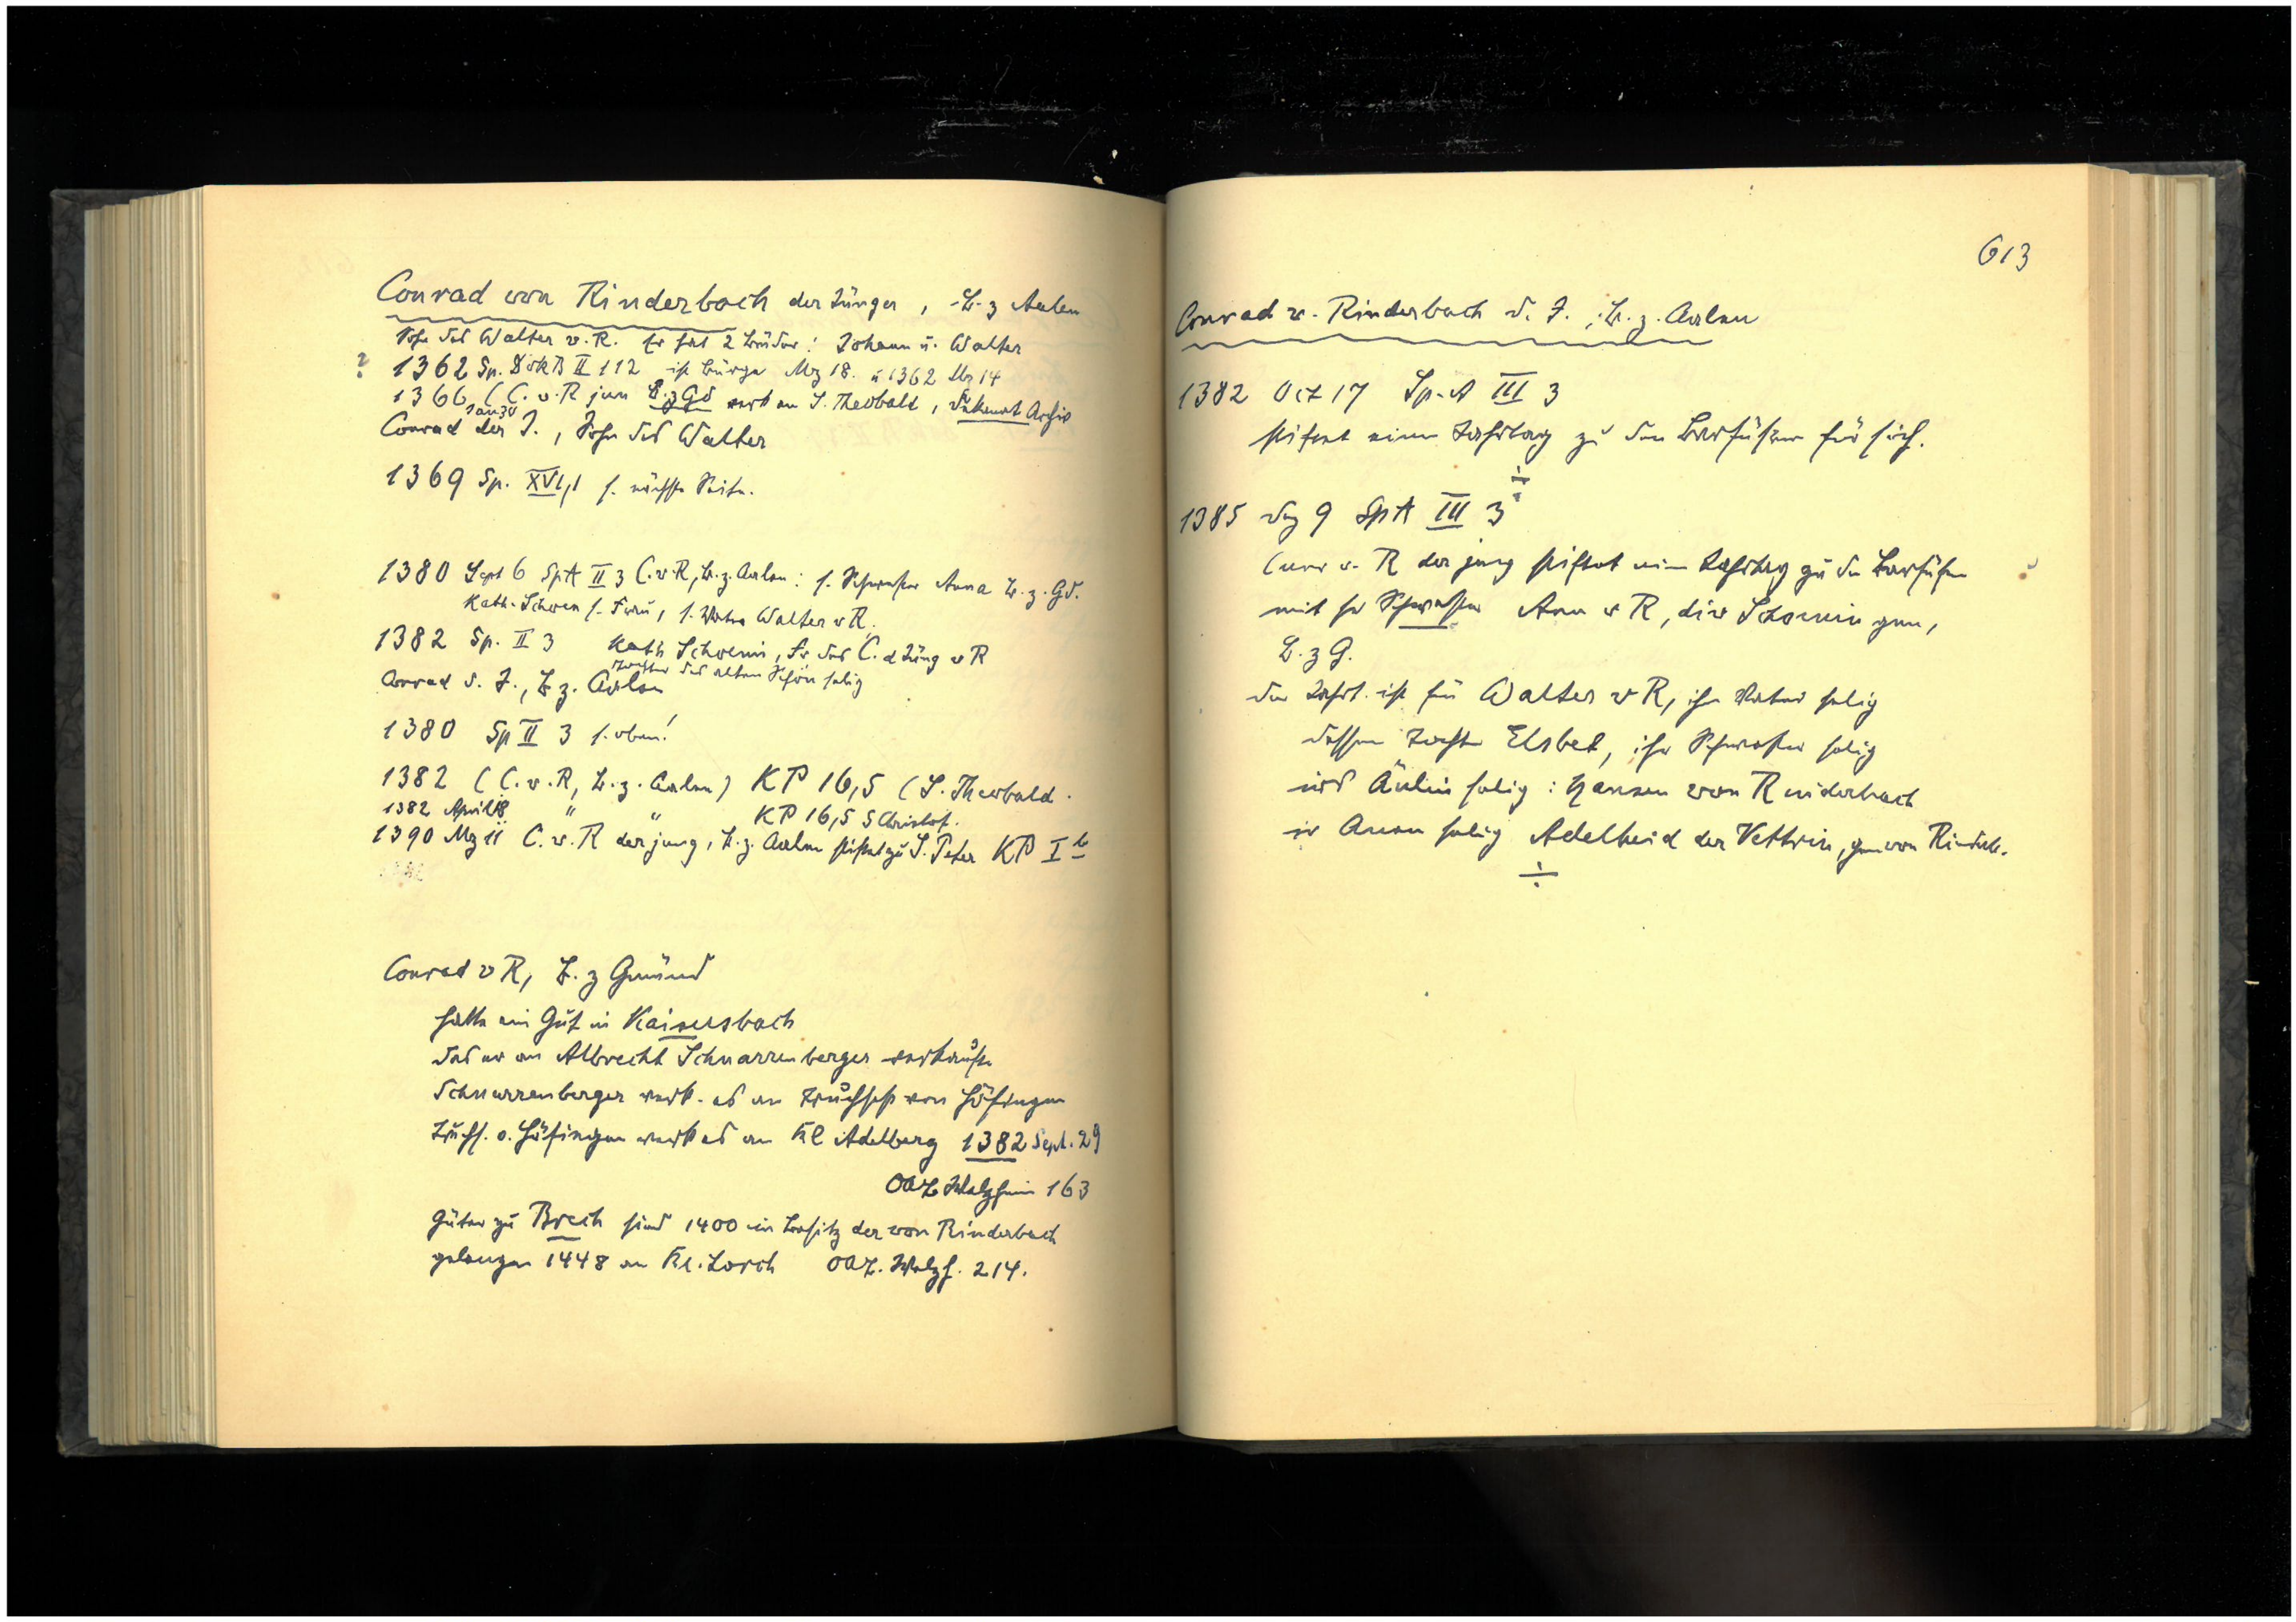 Conrad von Rinderbach der Jünger, B. z Aalen
Sohn des Walter v. R. Er hat 2 Brüder: Johann u. Walter
? 1362 Sp. DokB II 112 ist Bürge Mz 18. u 1362 Mz 14
1366 (C. v. R jun B. z Gd verk an S. Theobald, Dekanat Archiv
Jan 30
Conrad der J., Sohn des Walter
1369 Sp. XVI,1 s. nächste Seite.
1380 Sept 6 SpA II 3 C. v. R, B. z. Aalen: s. Schwester Anna B. z. Gd.
Kath. Schoen s. Frau, s. Vater Walter v R.
1382 Sp. II 3 Kath Schoenin, Fr des C. d Jüng v R
Tochter des alten Schön selig
Conrad d. J., B z. Aalen
1380 Sp II 3 s. oben!
1382 (C. v. R, B. z. Aalen) KP 16,5 (S. Theobald.
1382 April 18 " " KP 16,5 S Christof.
1390 Mz 11 C. v. R der jung, B. z. Aalen stiftet zu S. Peter KP I b
Conrad v R, B. z Gmünd
hatte ein Gut in Kaisersbach
das er an Albrecht Schnarrenberger verkaufte
Schnarrenberger verk. es an Truchsess von Höfingen
Truchs. v. Höfingen verk es an Kl Adelberg 1382 Sept. 29
OAB Welzheim 163
Güter zu Brech sind 1400 im Besitz der von Rinderbach
gelangen 1448 an Kl. Lorch OAB. Welzh. 214.
613
Conrad v. Rinderbach d. J., B. z. Aalen
1382 Oct 17 Sp. A III 3
stiftet einen Jahrtag zu den Barfüßern für sich.
1385 Dez 9 SpA III 3
Cunr v. R der jung stiftet einen Jahrtag zu den Barfüßen
mit sr Schwester Ann v R, die Schoenin gen,
B. z G.
der Jahrt. ist für Walter v R, ihr Vater selig
dessen Tochter Elsbet, ihr Schwester selig
und Änlin selig: Hansen von Rinderbach
selig Adelheid der Vettrin, gen von Rinderb.